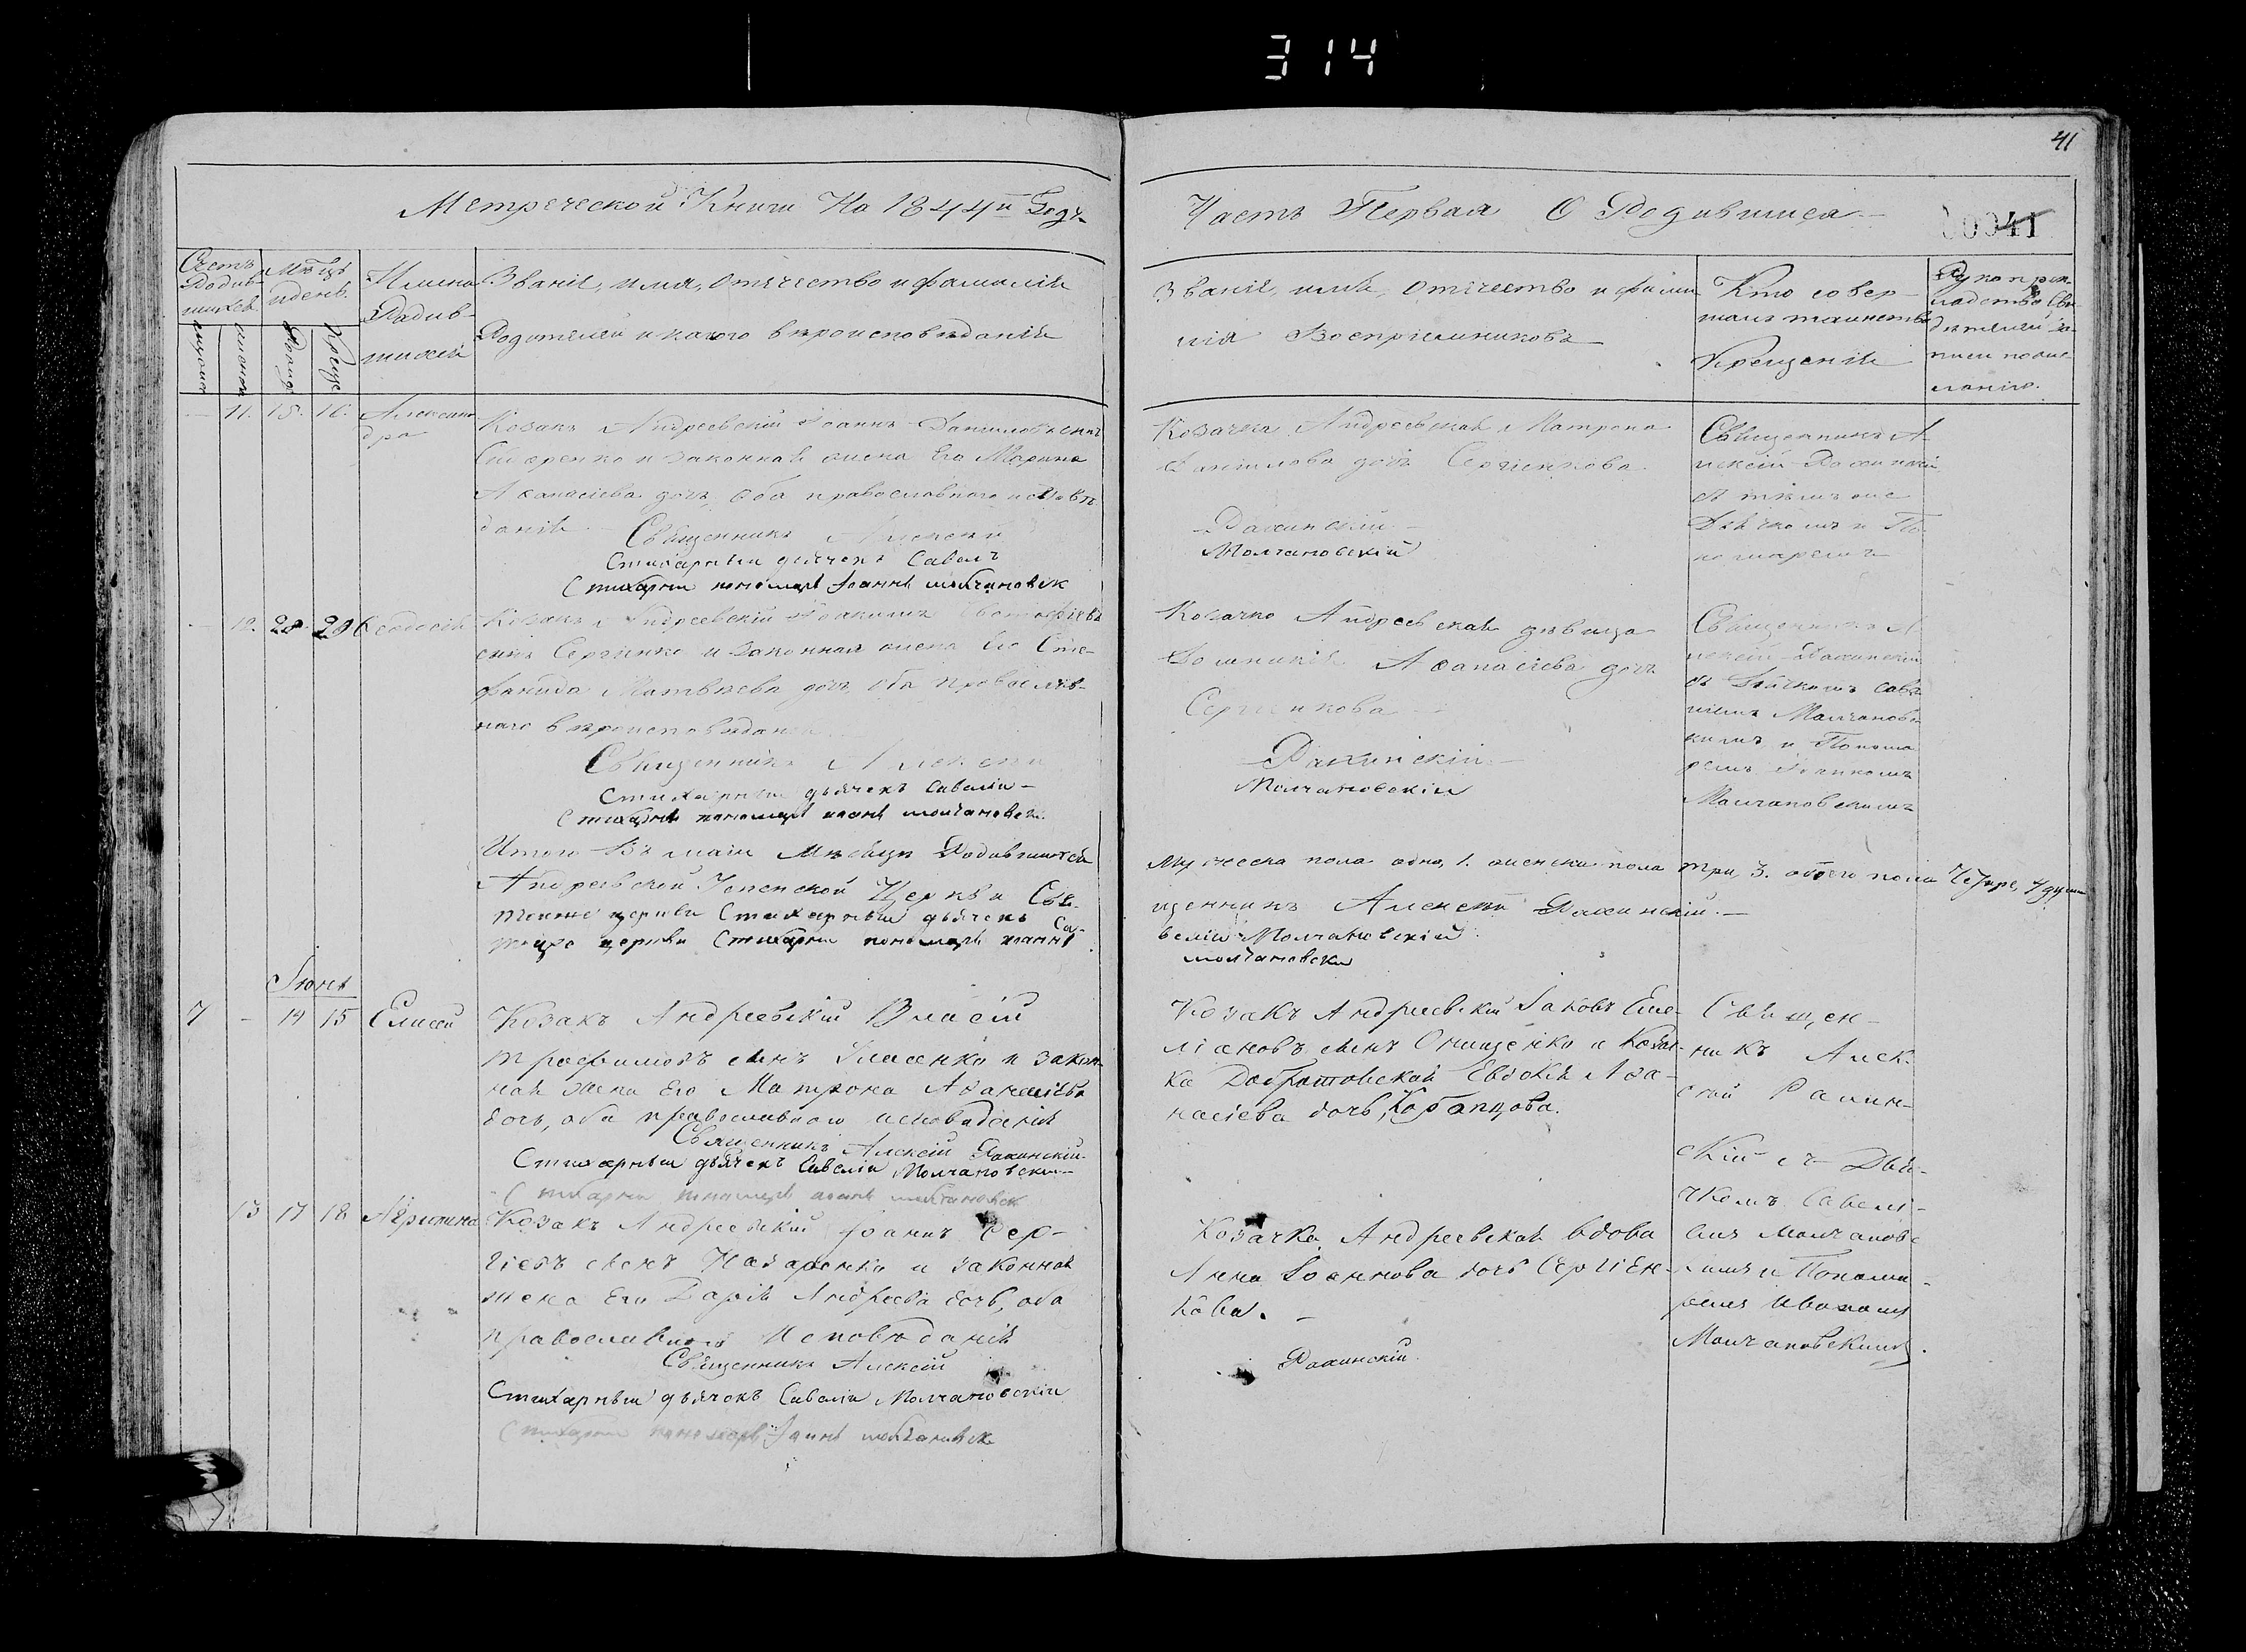 314
41
Метреческой Книги На 1844й Годъ
Часть Первая О Родившихся
00041
Счетъ Родившихся
Мѣсяцъ и день
Имена Родившихся
Званіе, имя, отечество и фамилія
Родителей и какого вѣроисповѣданія
Званіе, имя, Отечество и фамилія Воспріемниковъ
Кто совершалъ таинство Крещенія
11. 15. 16. Александра
Козакъ Андреевскій Іоаннъ Даниловъ сынъ
и законная жена Его Марина
Афанасіева дочь, оба православнаго исповѣданія
Священникъ Алексей
Стихарный дьячекъ Савелъ
Стихарни пономарь Іоаннъ молчановск
Козачка Андреевская Матрена
Данилова дочь Сергіенкова
Рахинскій
Молчановскій
Священникъ Алексій Рахинскій
съ тѣмъ же
Дьячкомъ и Пономаремъ
12. 28 28 Феодосія
Козакъ Андреевскій Іоакимъ
сынъ Сергіенко и законная жена Его Стефанида Матвѣева дочь, оба православнаго вѣроисповѣданія
Священникъ Алексей
Стихарныи дьячекъ Савелій
Стихарни пономарь иоанъ молчановск
Козачка Андреевская дѣвица
Домникія Афанасіева дочь
Сергіенкова
Рахинскій
Молчановскій
Священникъ Алексій Рахинскій
съ Дьячкомъ Савеліемъ Молчановскимъ и Пономаремъ Іоанномъ
Молчановскимъ
Итого Въ маіи Мѣсяцѣ Родившихся
Мужеска пола одно, 1. женска пола три, 3. обоего пола Четыре, 4 души
Андреевской Успенской Церкви Священникъ Алексей Рахинскій.
тоиже церкви Стихарныи дьячекъ Савелій Молчановскій
тоиже церкви Стихарни пономарь иоаннъ
молчановски
Іюнь
7 - 14 15 Елисей
Козакъ Андреевскій Власій
Трофимовъ сынъ Власенко и законная жена Его Матрона Афанасіева
дочь, оба православнаго исповѣданія
Священникъ Алексій Рахинскій
Стихарныи дьячекъ Савелій Молчановскій
Стихарни пономарь иоанъ молчановск
Козакъ Андреевскій Іаковъ Емеліановъ сынъ Онищенко и Козачка Добротовская Евдокія Афанасіева дочь,
Священникъ Алексій Рахинскій съ Дьячкомъ Савеліемъ Молчановскимъ и Пономаремъ Иваномъ
Молчановскимъ.
13 17 18 Агрипина
Козакъ Андреевскій Іоаннъ Сергіевъ сынъ Назаренко и законная
жена Его Дарія Андреева дочь, оба
православнаго Исповѣданія
Священникъ Алексій
Стихарныи дьячокъ Савелій Молчановскій
Стихарни пономарь Іоаннъ молчановск
Козачка Андреевская вдова
Анна Іоаннова дочь Сергіенкова.
Рахинскій